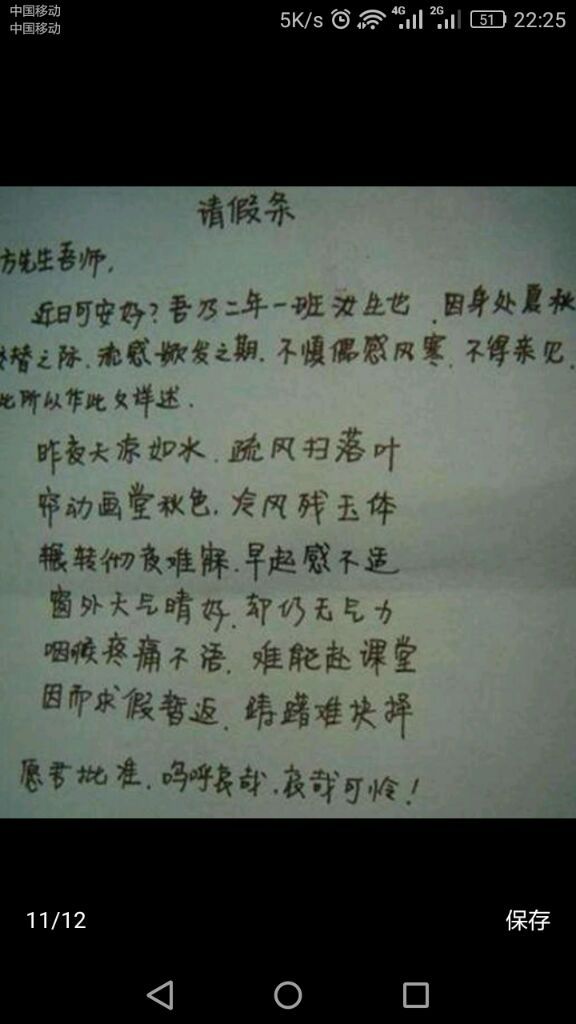 中国移动
中国移动
5K/s 4G 2G 51 22:25
请假条
方先生吾师,
近日可安好?吾乃二年一班汝生也,因身处夏秋
替之际,流感掀发之期,不慎偶感风寒,不得亲见,
此所以作此文详述.
昨夜天凉如水,疏风扫落叶
帘动画堂秋色,冷风残玉体
辗转彻夜难寐,早起感不适
窗外天气晴好,却仍无气力
咽喉疼痛不语,难能赴课堂
因而求假暂返,踌躇难抉择
愿君批准,呜呼哀哉,哀哉可怜!
11/12
保存